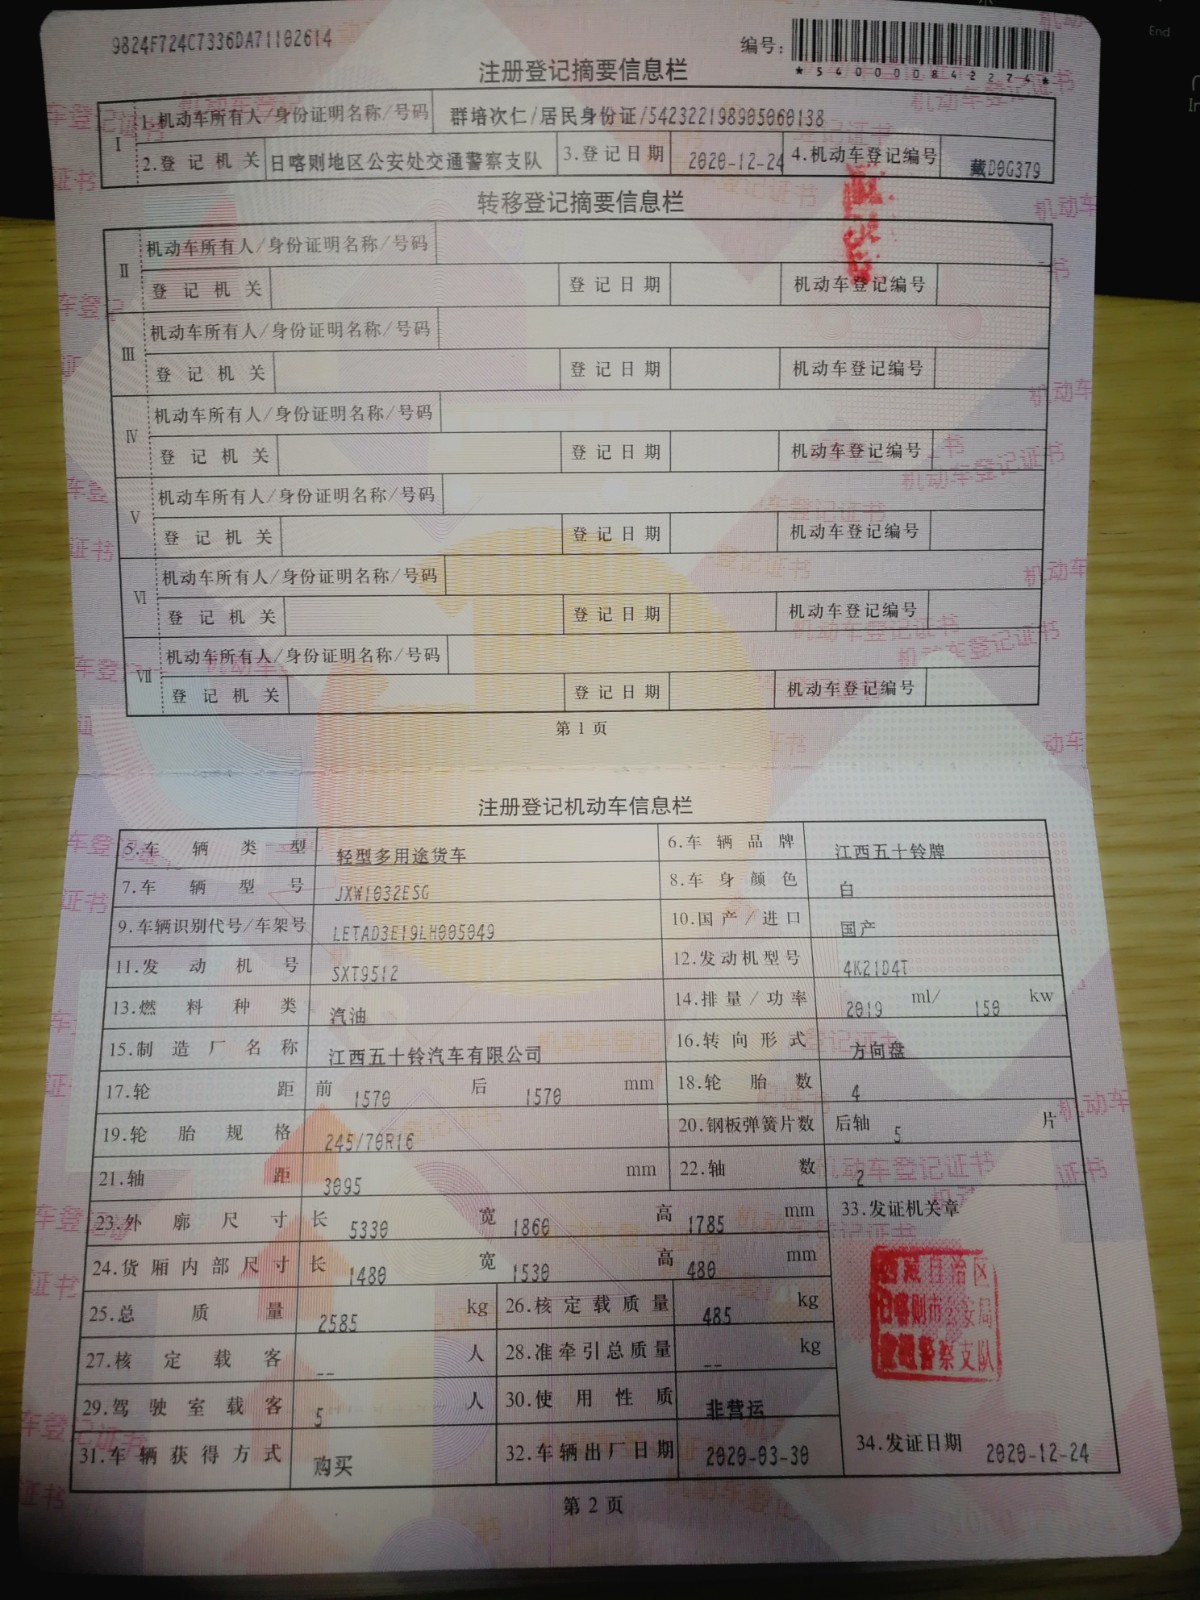 9824F724C7336DA71102614
编号:
*540000842274*
注册登记摘要信息栏
I 1.机动车所有人/身份证明名称/号码 群培次仁/居民身份证/542322198905060138
2.登记机关 日喀则地区公安处交通警察支队 3.登记日期 2020-12-24 4.机动车登记编号 藏D0G379
转移登记摘要信息栏
II 机动车所有人/身份证明名称/号码
登记机关 登记日期 机动车登记编号
III 机动车所有人/身份证明名称/号码
登记机关 登记日期 机动车登记编号
IV 机动车所有人/身份证明名称/号码
登记机关 登记日期 机动车登记编号
V 机动车所有人/身份证明名称/号码
登记机关 登记日期 机动车登记编号
VI 机动车所有人/身份证明名称/号码
登记机关 登记日期 机动车登记编号
VII 机动车所有人/身份证明名称/号码
登记机关 登记日期 机动车登记编号
第1页
注册登记机动车信息栏
5.车辆类型 轻型多用途货车 6.车辆品牌 江西五十铃牌
7.车辆型号 JXW1032ESG 8.车身颜色 白
9.车辆识别代号/车架号 LETAD3E19LH005049 10.国产/进口 国产
11.发动机号 SXT9512 12.发动机型号 4K21D4T
13.燃料种类 汽油 14.排量/功率 2019 ml/ 150 kw
15.制造厂名称 江西五十铃汽车有限公司 16.转向形式 方向盘
17.轮距 前 1570 后 1570 mm 18.轮胎数 4
19.轮胎规格 245/70R16 20.钢板弹簧片数 后轴 5 片
21.轴距 3095 mm 22.轴数 2
23.外廓尺寸 长 5330 宽 1860 高 1785 mm 33.发证机关章
24.货厢内部尺寸 长 1480 宽 1530 高 480 mm
西藏自治区
日喀则市公安局
交通警察支队
25.总质量 2585 kg 26.核定载质量 485 kg
27.核定载客 -- 人 28.准牵引总质量 -- kg
29.驾驶室载客 5 人 30.使用性质 非营运
31.车辆获得方式 购买 32.车辆出厂日期 2020-03-30 34.发证日期 2020-12-24
第2页
End